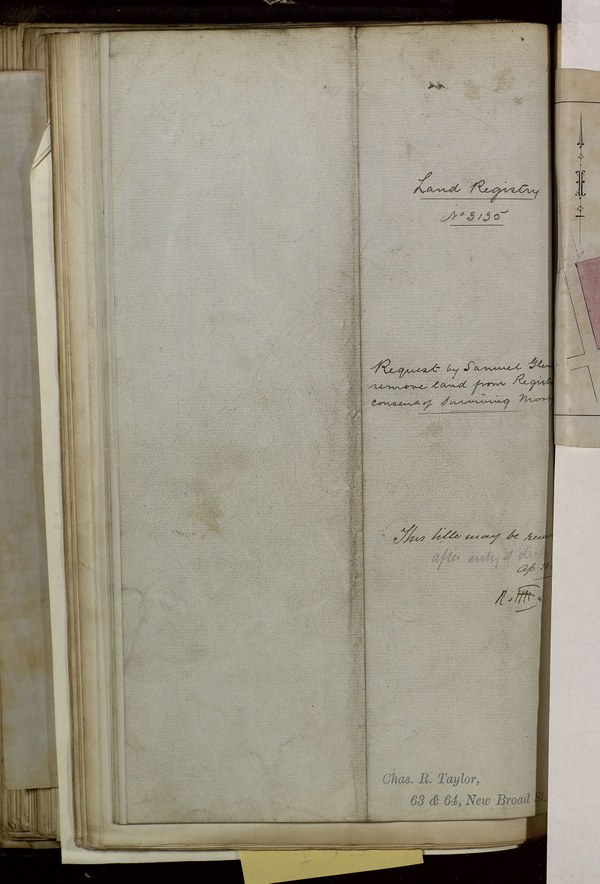 Land Registry
No 3135
Request by Samuel
remove land from
consent of Surviving
This title may be
after entry of
Ap.
Chas. R. Taylor,
63 & 64, New Broad St.